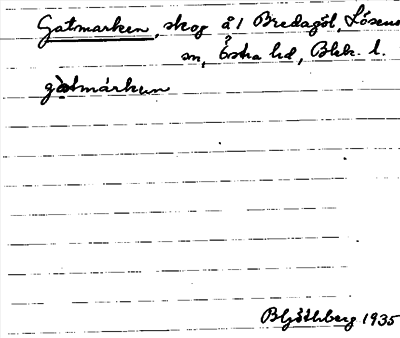 Gatmarken, skog å 1 Bredagöl, Lösens
sn, Östra hd, Blek. l.
gàtmárken
B Ljöthberg 1935